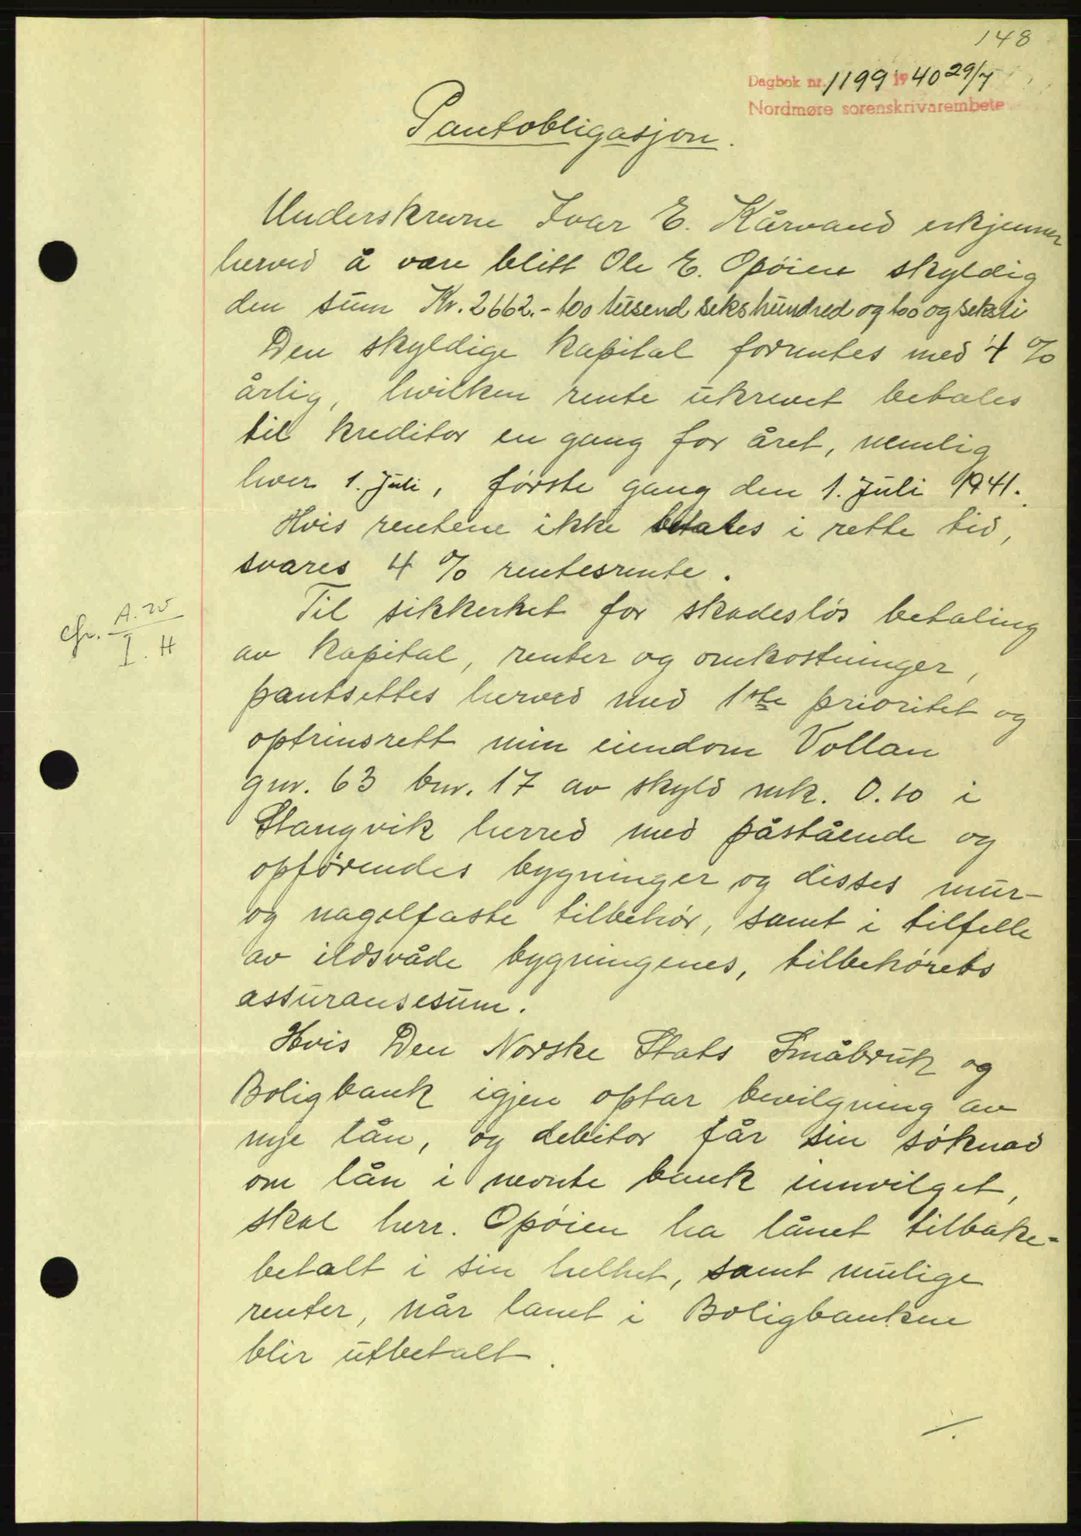 148
Dagbok nr. 1199 1940 29/7
Nordmøre sorenskrivarembete
Pantobligasjon.
Underskrevne Ivar E. Kårvand erkjenner
herved å være blitt Ole E. Opøien skyldig
den sum Kr. 2662.- too tusend sekshundred og too og seksti
Den skyldige kapital forrentes med 4 %
årlig, hvilken rente ukrevet betales
til kreditor en gang for året, nemlig
hver 1. Juli, første gang den 1. Juli 1941.
Hvis rentene ikke betales i rette tid,
svares 4 % rentesrente.
Til sikkerhet for skadesløs betaling
cfr. A. 25
I. H
av kapital, renter og omkostninger,
pantsettes herved med 1ste prioritet og
opptrinsrett min eiendom Vollan
gnr. 63 bnr. 17 av skyld mk. 0.10 i
Stangvik herred med påstående og
opførendes bygninger og disses mur-
og nagelfaste tilbehør, samt i tilfelle
av ildsvåde bygningenes, tilbehørets
assuransesum.
Hvis Den Norske Stats Småbruk og
Boligbank igjen optar bevilgning av
nye lån, og debitor får sin søknad
om lån i nevnte bank innvilget,
skal herr. Opøien ha lånet tilbake-
betalt i sin helhet, samt mulige
renter, når lånet i Boligbanken
blir utbetalt.
./.